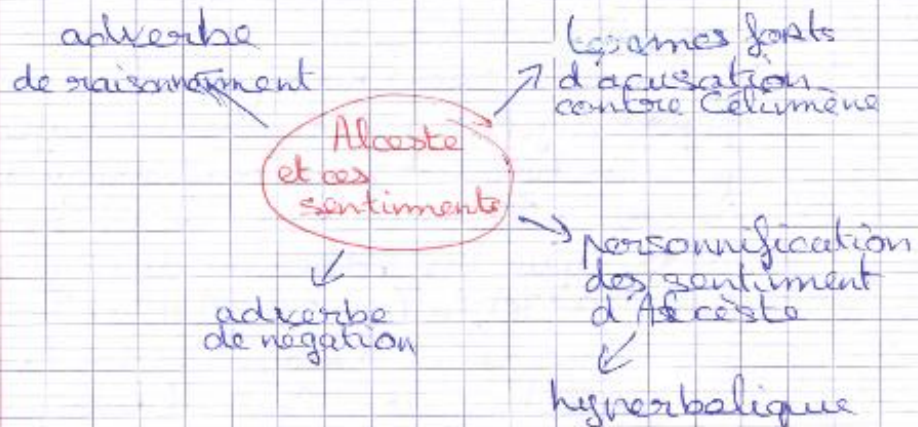 adverbe
de raisonnement
termes forts
d'acusation
contre Célimène
Alceste
et ces
sentiments
personnification
des sentiment
d'Alceste
hyperbolique
adverbe
de negation